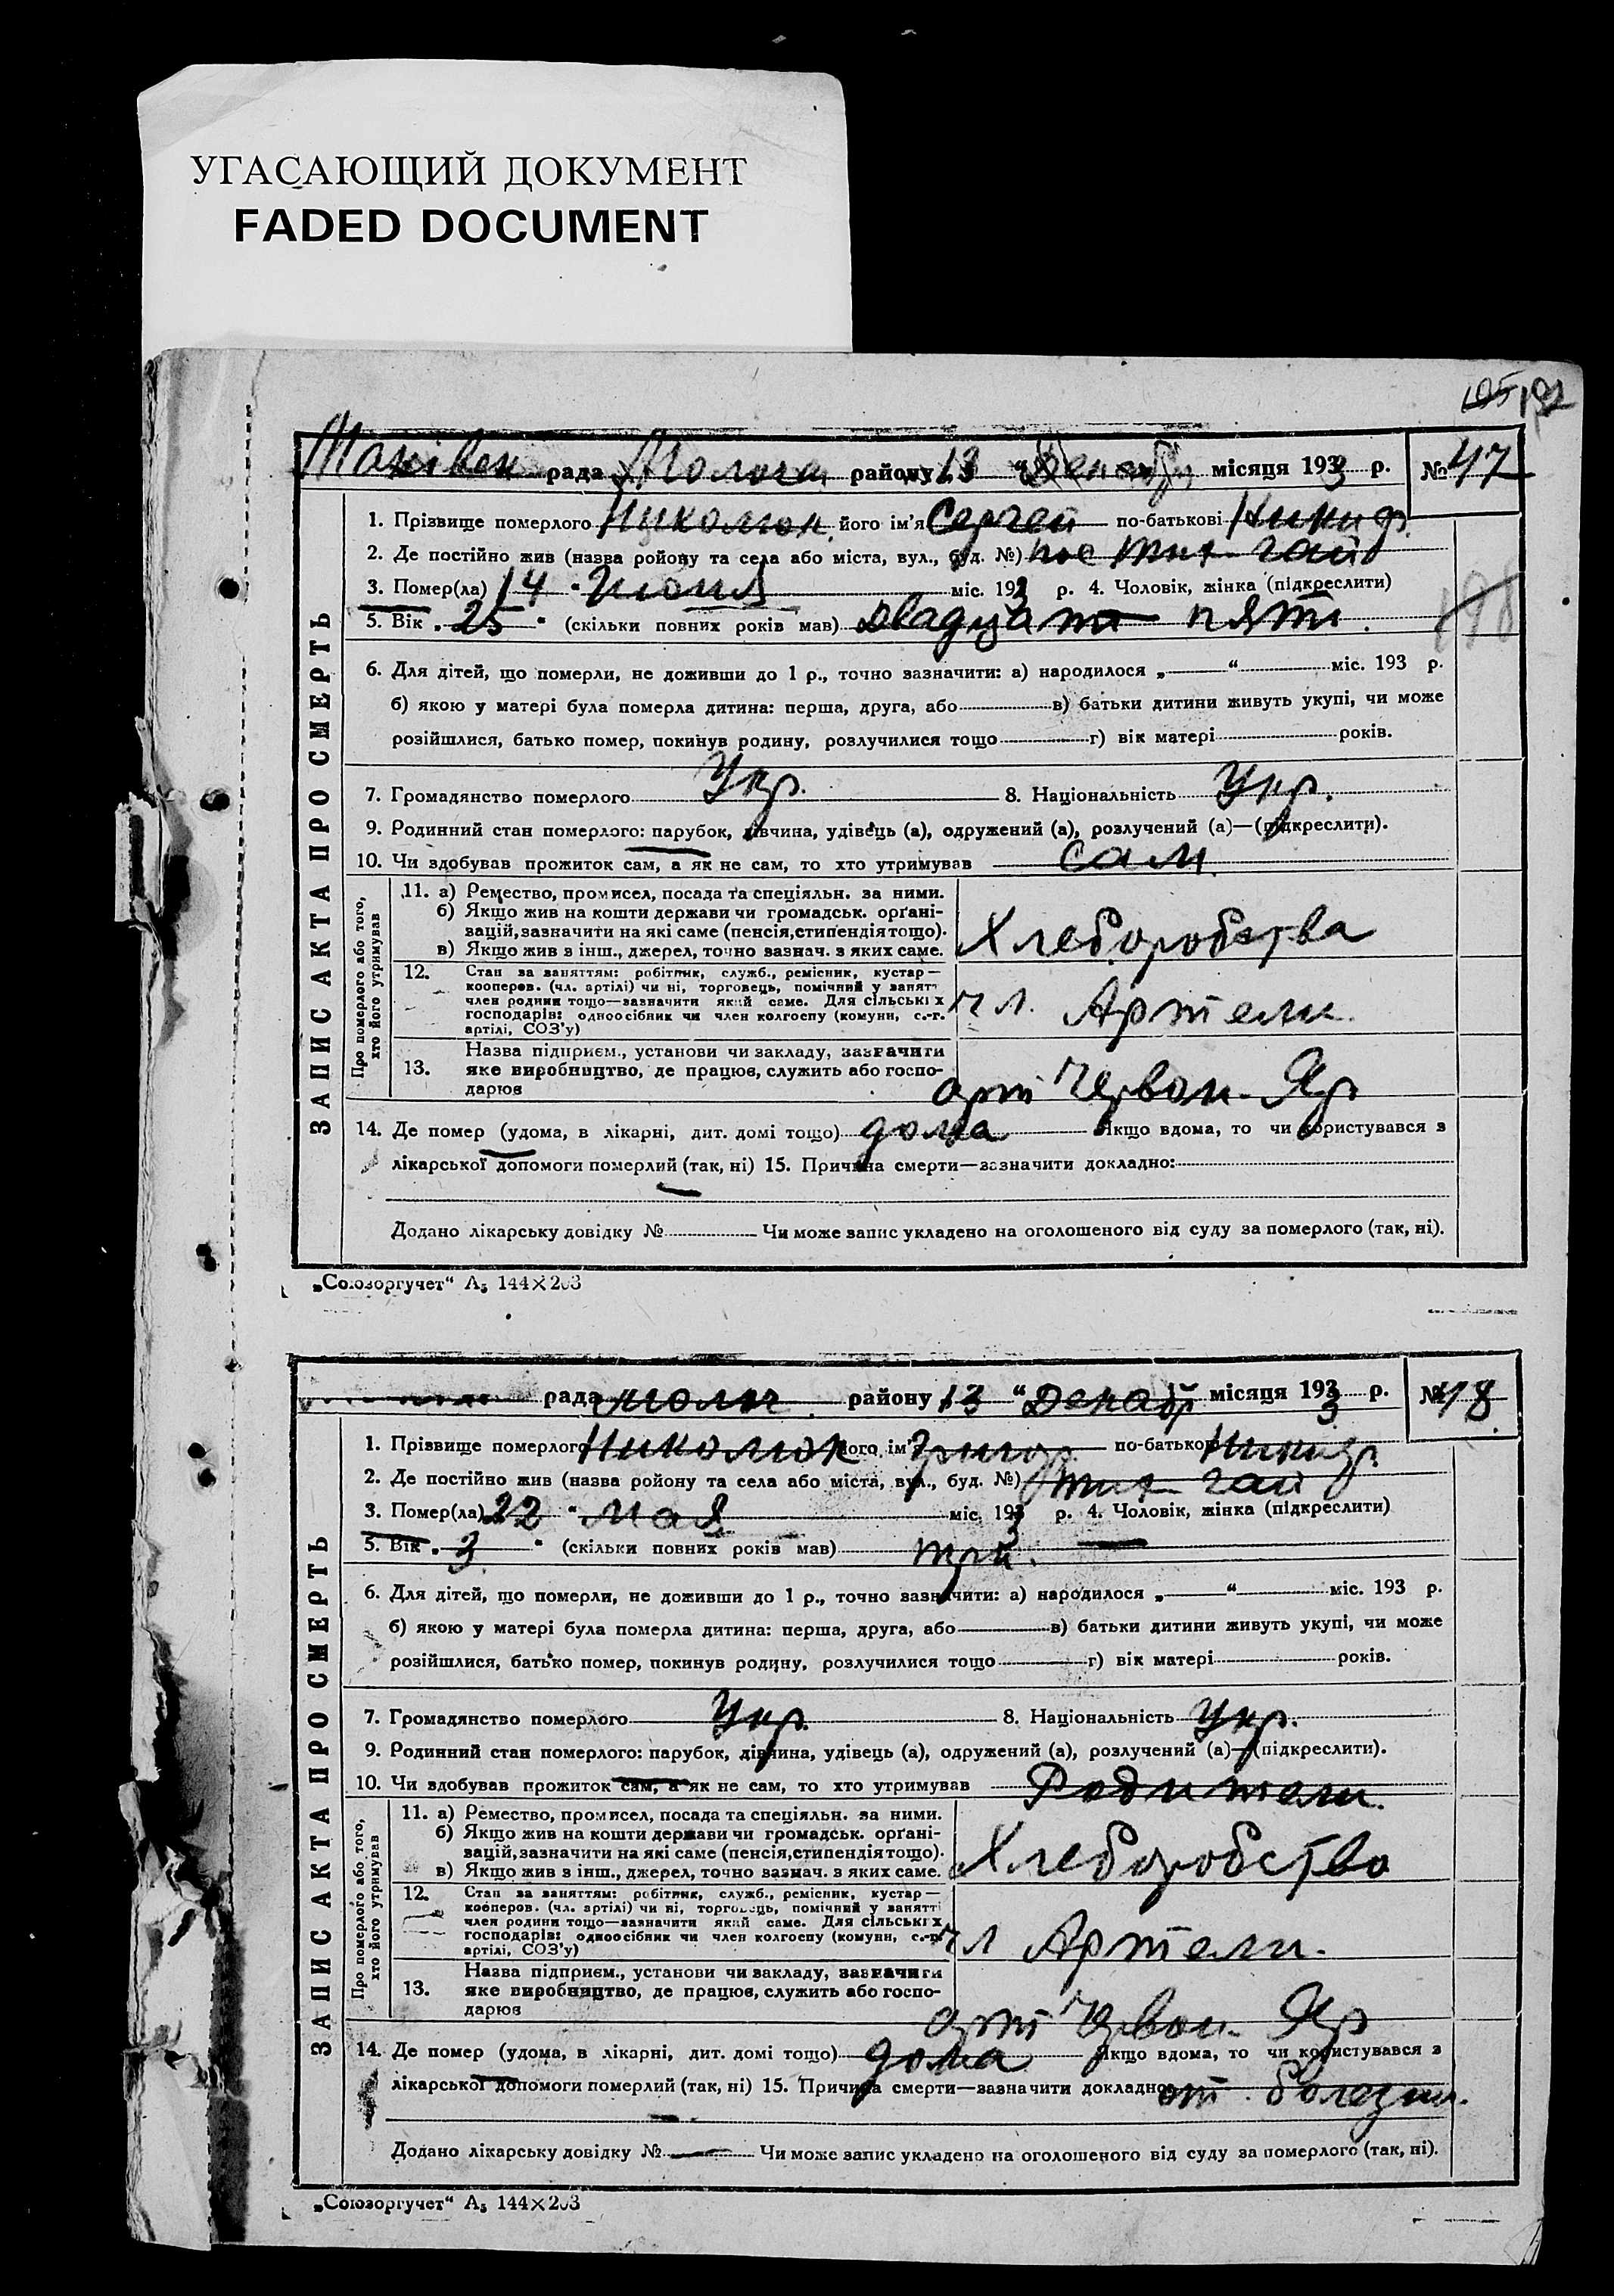 УГАСАЮЩИЙ ДОКУМЕНТ
FADED DOCUMENT
ЗАПИС АКТА ПРО СМЕРТЬ
рада району 13 " місяця 1933 р. № 47
1. Прізвище померлого Николюк його ім'я Сергей по-батькові Никиф.
2. Де постійно жив (назва ройону та села або міста, вул., буд. №) пос Тих гай
3. Помер(ла) 14 " Июня міс. 1933 р. 4. Чоловік, жінка (підкреслити)
5. Вік „ 25 " (скільки повних років мав) двадцать пять.
6. Для дітей, що померли, не доживши до 1 р., точно зазначити: а) народилося „ “ міс. 193 р.
б) якою у матері була померла дитина: перша, друга, або в) батьки дитини живуть укупі, чи може
розійшлися, батько помер, покинув родину, розлучилися тощо г) вік матері років.
7. Громадянство померлого Укр. 8. Національність Укр.
9. Родинний стан померлого: парубок, дівчина, удівець (а), одружений (а), розлучений (а)—(підкреслити).
10. Чи здобував прожиток сам, а як не сам, то хто утримував сам.
Про померлого або того, хто його утримував
11. а) Ремество, промисел, посада та спеціяльн. за ними.
б) Якщо жив на кошти держави чи громадськ. орґані-
зацій, зазначити на які саме (пенсія, стипендія тощо).
в) Якщо жив з інш., джерел, точно зазнач. з яких саме.
Хлеборобства
12. Стан за заняттям: робітник, служб., ремісник, кустар—
кооперов. (чл. артілі) чи ні, торговець, помічний у занятт
член родини тощо—зазначити який саме. Для сільських
господарів: одноосібник чи член колгоспу (комуни, с.-г.
артілі, СОЗ'у)
чл. Артели.
13. Назва підприєм., установи чи закладу, зазначити
яке виробництво, де працює, служить або госпо-
дарює
арт Червон. Яр
14. Де помер (удома, в лікарні, дит. домі тощо) дома Якщо вдома, то чи користувався з
лікарської допомоги померлий (так, ні) 15. Причина смерти—зазначити докладно:
Додано лікарську довідку № Чи може запис укладено на оголошеного від суду за померлого (так, ні).
„Союзоргучет“ А5 144×203
ЗАПИС АКТА ПРО СМЕРТЬ
рада району 13 “ Декабр місяця 1933 р. № 48
1. Прізвище померлого Николюк його ім'я Григор по-батькові Никиф.
2. Де постійно жив (назва ройону та села або міста, вул., буд. №) Тих гай
3. Помер(ла) 22 " мая міс. 1933 р. 4. Чоловік, жінка (підкреслити)
5. Вік „ 3 " (скільки повних років мав) три.
6. Для дітей, що померли, не доживши до 1 р., точно зазначити: а) народилося „ “ міс. 193 р.
б) якою у матері була померла дитина: перша, друга, або в) батьки дитини живуть укупі, чи може
розійшлися, батько помер, покинув родину, розлучилися тощо г) вік матері років.
7. Громадянство померлого Укр. 8. Національність Укр.
9. Родинний стан померлого: парубок, дівчина, удівець (а), одружений (а), розлучений (а)—(підкреслити).
10. Чи здобував прожиток сам, а як не сам, то хто утримував Родители.
Про померлого або того, хто його утримував
11. а) Ремество, промисел, посада та спеціяльн. за ними.
б) Якщо жив на кошти держави чи громадськ. орґані-
зацій, зазначити на які саме (пенсія, стипендія тощо).
в) Якщо жив з інш., джерел, точно зазнач. з яких саме.
Хлеборобство
12. Стан за заняттям: робітник, служб., ремісник, кустар—
кооперов. (чл. артілі) чи ні, торговець, помічний у занятті
член родини тощо—зазначити який саме. Для сільських
господарів: одноосібник чи член колгоспу (комуни, с.-г.
артілі, СОЗ'у)
чл Артели.
13. Назва підприєм., установи чи закладу, зазначити
яке виробництво, де працює, служить або госпо-
дарює
арт Червон. Яр
14. Де помер (удома, в лікарні, дит. домі тощо) дома Якщо вдома, то чи користувався з
лікарської допомоги померлий (так, ні) 15. Причина смерти—зазначити докладно: от болезни.
Додано лікарську довідку № Чи може запис укладено на оголошеного від суду за померлого (так, ні).
„Союзоргучет“ А5 144×203